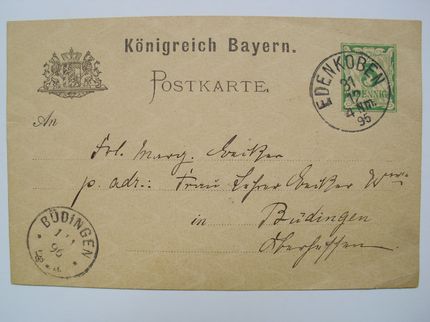 Königreich Bayern.
POSTKARTE.
EDENKOBEN
31
12
4 Nm.
95
PFENNIG
An
Frl. Marg.
p. adr.: Frau Lehrer Wwe
in Büdingen
Oberhessen.
BÜDINGEN
1
96